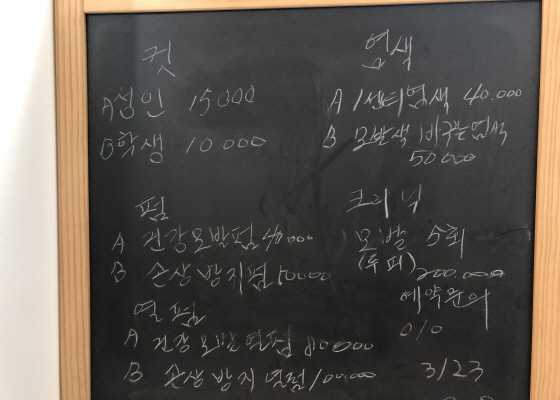 컷
A 성인 15000
B 학생 10000
염색
A 1센티염색 40.000
B 모발색 바구는염색
50000
펌
A 건강모발펌 40000
B 손상방지펌 50000
열펌
A 건강모발열펌 80000
B 손상방지열펌 100.000
크리닉
모발 5회
(두피)
200.000
예약문의
010
3123